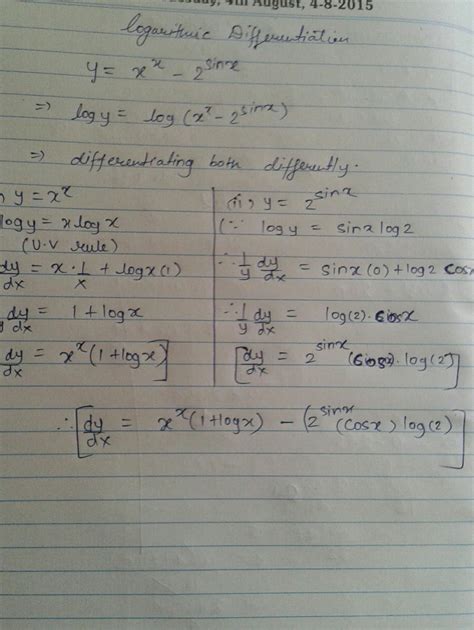 4th August, 4-8-2015
Logarithmic Differentiation
y = x^x - 2^sinx
⇒ log y = log (x^x - 2^sinx)
⇒ differentiating both differently.
) y = x^x
log y = x log x
(U.V rule)
dy/dx = x · 1/x + log x (1)
dy/dx = 1 + log x
dy/dx = x^x (1 + log x)]
(ii) y = 2^sinx
(∵ log y = sin x log 2
∴ 1/y dy/dx = sin x (0) + log 2 cos x
∴ 1/y dy/dx = log(2) · cos x
[dy/dx = 2^sinx (cosx) · log(2)]
∴ [dy/dx = x^x (1 + log x) - (2^sinx (cos x) log(2)]